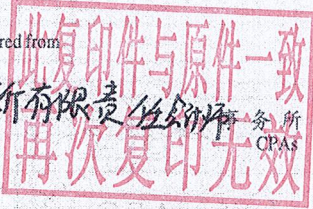 red from
此复印件与原件一致
所有限责任会计师事务所
CPAs
再次复印无效